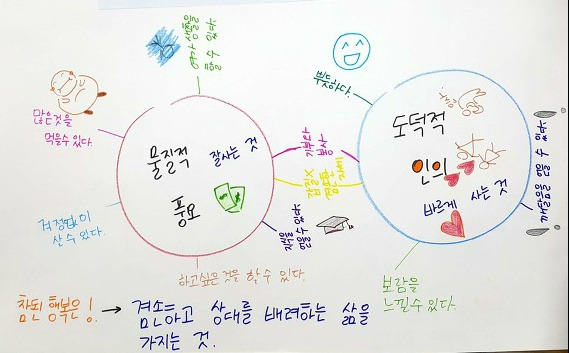 여가 생활을
즐길 수 있다.
많은것을
먹을수 있다.
물질적
잘사는 것
풍요
걱정없이
살 수 있다.
하고싶은 것을 할 수 있다.
지식을
얻을 수 있다.
기부와
봉사
겸손한
자세
뿌듯하다.
도덕적
인의
바르게 사는 것
깨달음을 얻을 수 있다.
보람을
느낄수 있다.
참된 행복은! → 겸손하고 상대를 배려하는 삶을
가지는 것.